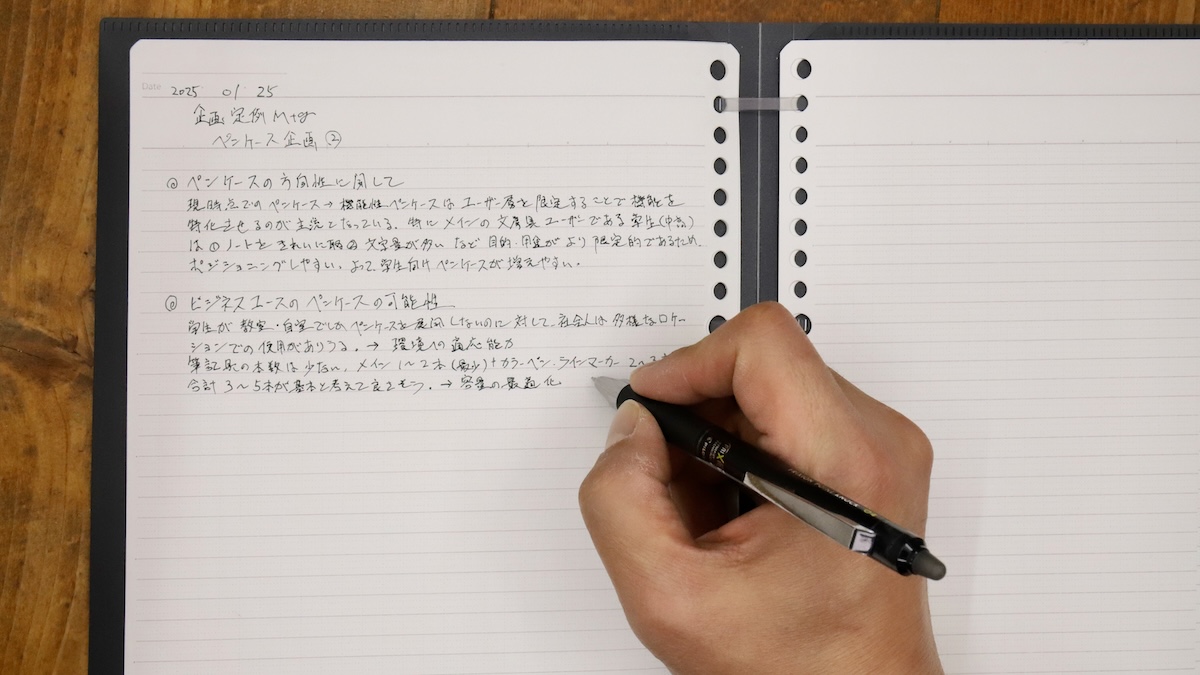 Date 2025 01 25
企画定例Mtg
ペンケース企画②
◎ ペンケースの方向性に関して
現時点でのペンケース→機能性ペンケースはユーザー層を限定することで機能を
特化させるのが主流となっている。特にメインの文房具ユーザーである学生(中高)
は①ノートをきれいに取る②文字量が多いなど目的・用途がより限定的であるため、
ポジショニングしやすい。よって、学生向けペンケースが増えやすい。
◎ ビジネスユースのペンケースの可能性
学生が教室・自室でしかペンケースを展開しないのに対して、社会人は多様なロケー
ションでの使用がありうる。→ 環境への適応能力
筆記具の本数は少ない。メイン1〜2本(最少)+カラーペン・ラインマーカー2〜3
合計3〜5本が基本と考えて良さそう。→ 容量の最適化